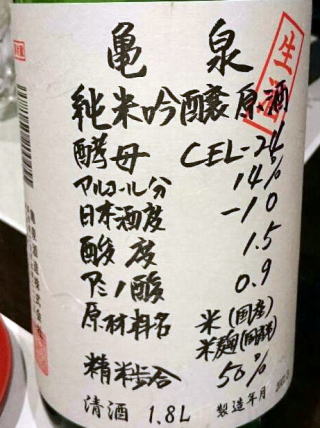 亀泉
生酒
純米吟醸原酒
酵母 CEL-24
アルコール分 14%
日本酒度 -10
酸度 1.5
アミノ酸 0.9
原材料名 米(国産)
米麹(国産米)
精米歩合 50%
清酒 1.8L 製造年月